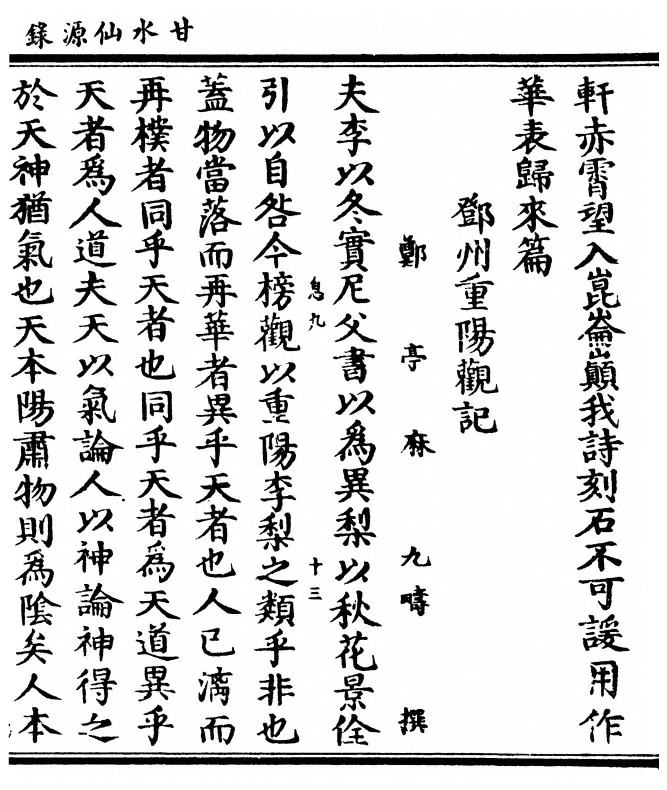 甘水仙源錄
軒赤霄望入崑崙巔我詩刻石不可諼用作
華表歸來篇
鄧州重陽觀記
鄭亭麻九疇撰
夫李以冬實尼父書以爲異梨以秋花景佺
息九
十三
引以自咎今榜觀以重陽李梨之類乎非也
蓋物當落而再華者異乎天者也人已漓而
再樸者同乎天者也同乎天者爲天道異乎
天者爲人道夫天以氣論人以神論神得之
於天神猶氣也天本陽肅物則爲陰矣人本